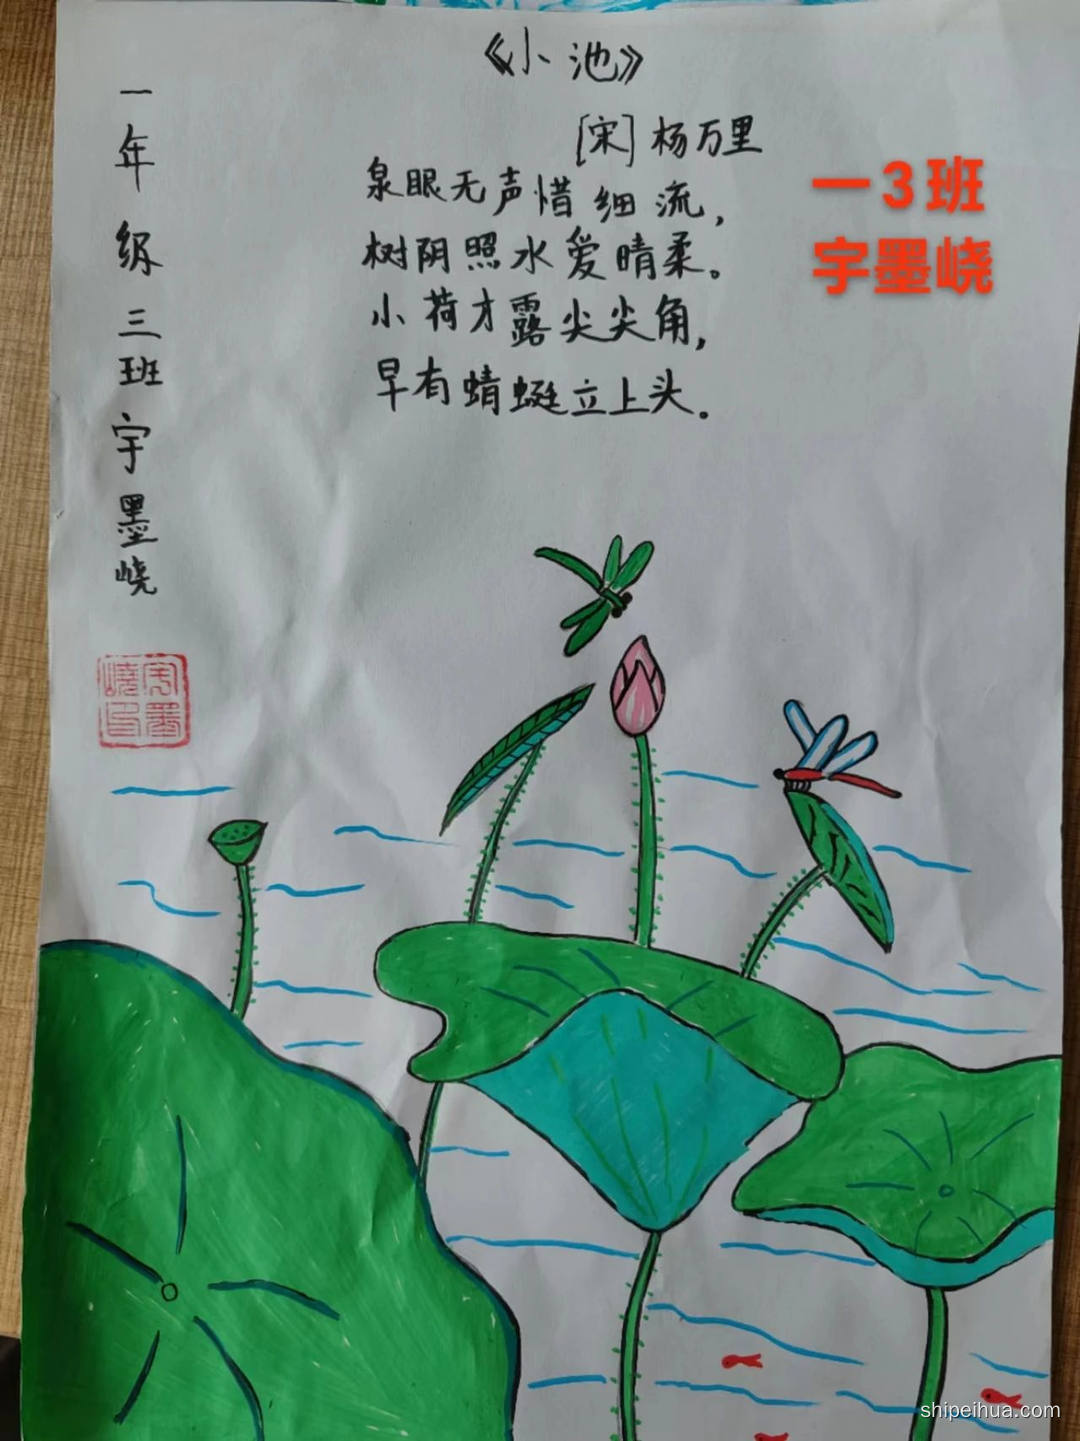 《小池》
[宋]杨万里
泉眼无声惜细流，
树阴照水爱晴柔。
小荷才露尖尖角，
早有蜻蜓立上头。
一年级三班宇墨峣
一3班
宇墨峣
shipeihua.com